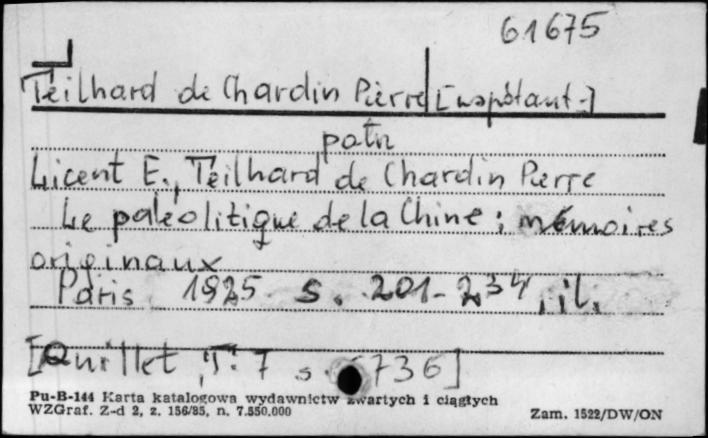 61675
Teilhard de Chardin Pierre [współaut.]
patrz
Licent E., Teilhard de Chardin Pierre
Le paléolitique de la Chine : mémoires
originaux
Paris 1925 s. 201-234, il.
[Quillet, T. 7 s. 6736]
Pu-B-144 Karta katalogowa wydawnictw zwartych i ciągłych
WZGraf. Z-d 2, z. 156/85, n. 7.550.000
Zam. 1522/DW/ON